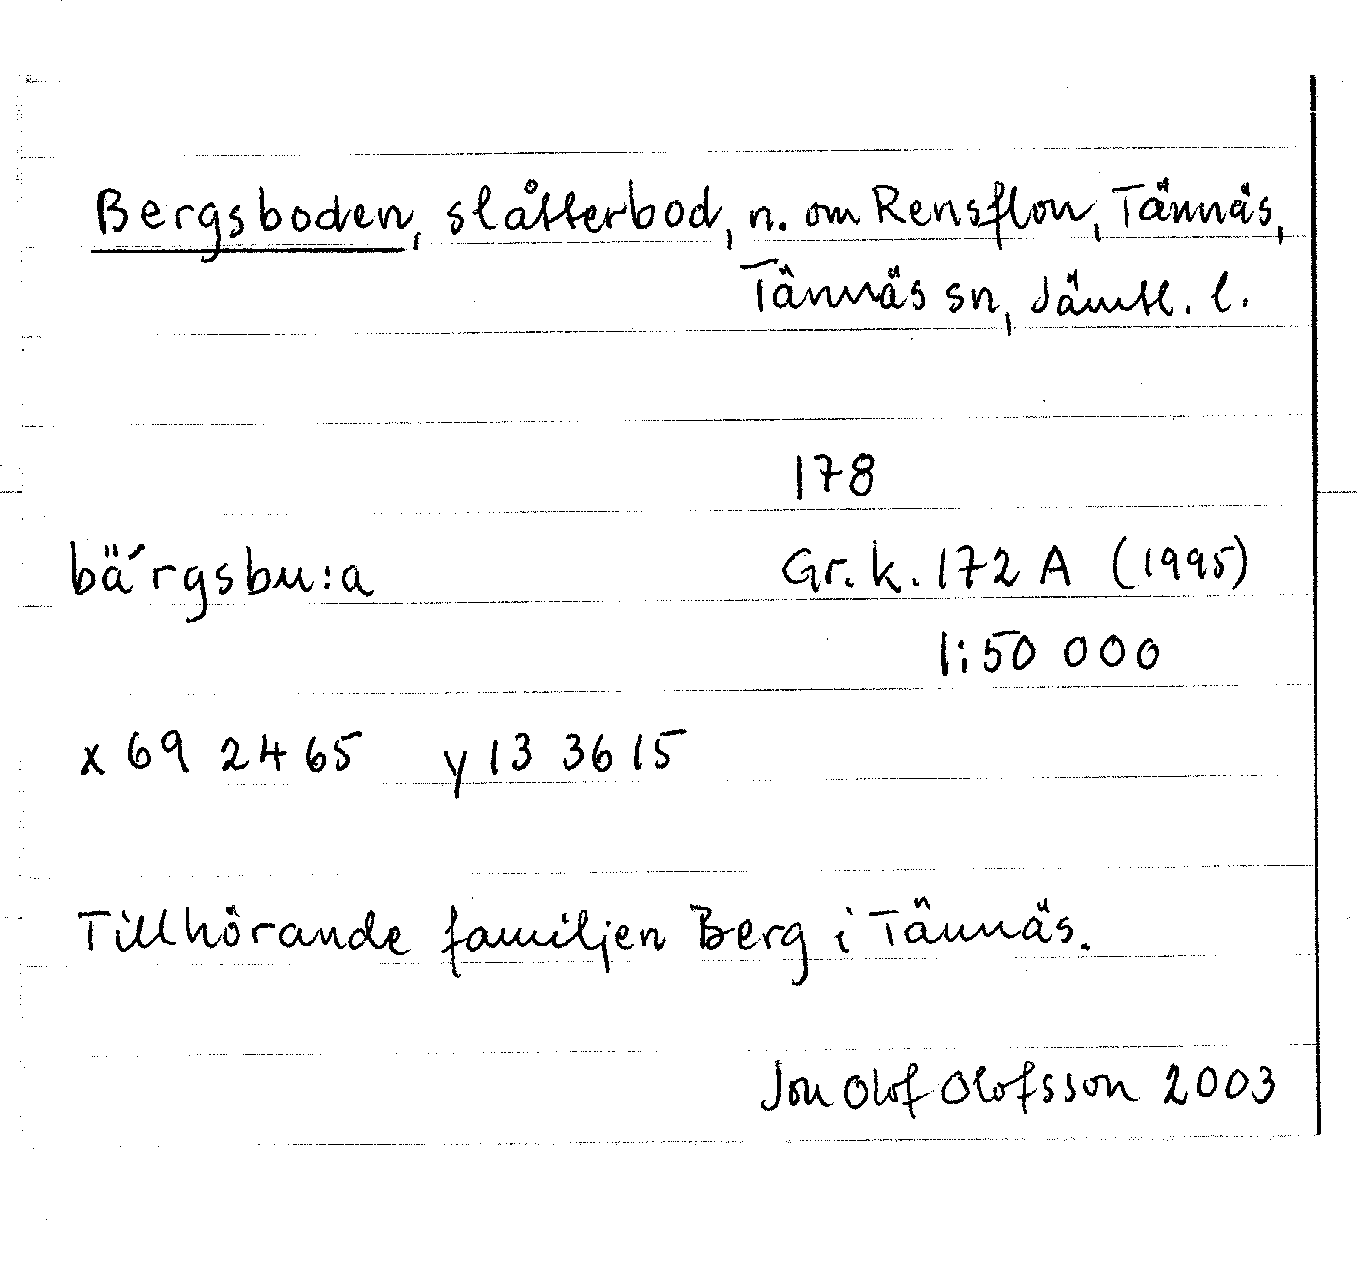 Bergsboden, slåtterbod, n. om Rensflon, Tännäs,
Tännäs sn, Jämtl. l.
178
bä́rgsbu:a Gr. k. 172 A (1995)
1:50 000
x 69 24 65 y 13 36 15
Tillhörande familjen Berg i Tännäs.
Jon Olof Olofsson 2003